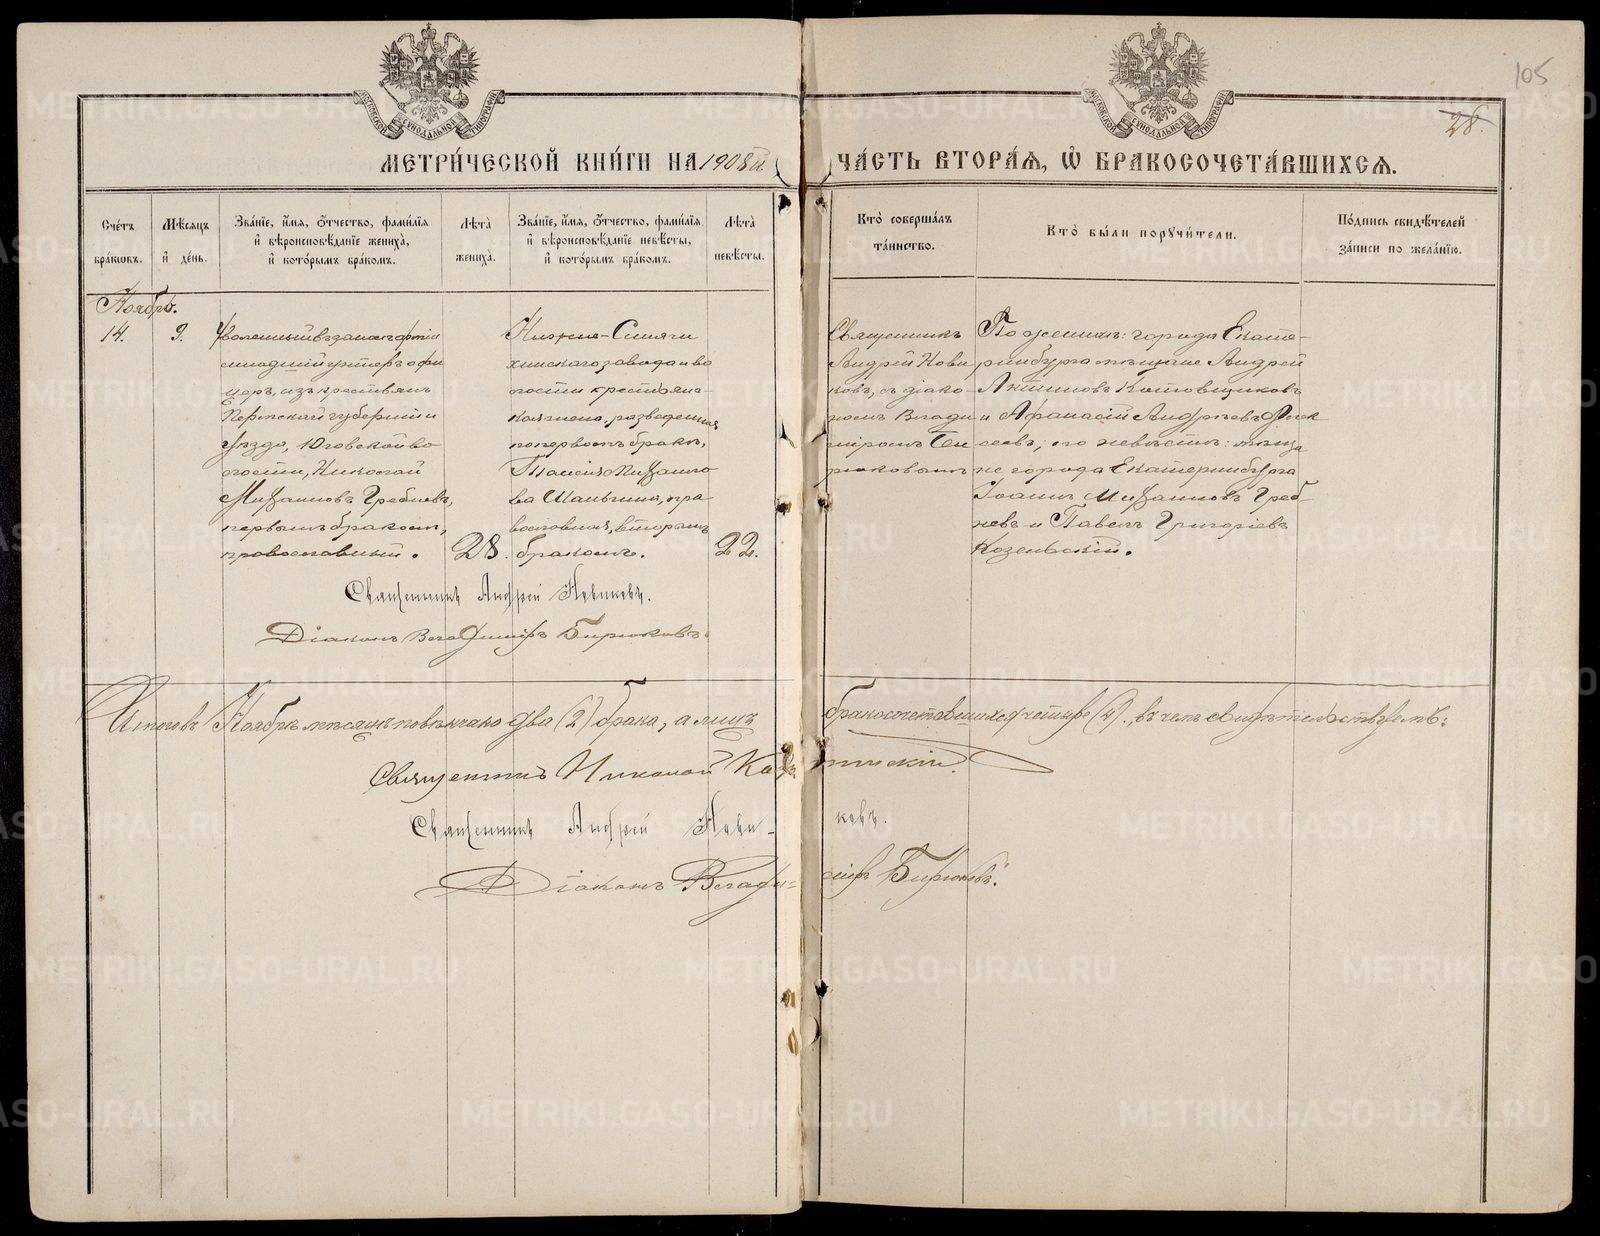 105
28.
МЕТРИ́ЧЕСКОЙ КНИ́ГИ НА 1908 й ЧА́СТЬ ВТОРА́Я, Ѡ҆ БРАКОСОЧЕТА́ВШИХСЯ.
Сче́тъ бра́кѡвъ.
Мѣ́сяцъ и҆ де́нь.
Зва́нїе, и҆́мя, ѻ҆́тчество, фами́лїя и҆ вѣроисповѣ́данїе жениха̀, и҆ кото́рымъ бра́комъ.
Лѣ́та жениха̀.
Зва́нїе, и҆́мя, ѻ҆́тчество, фами́лїя и҆ вѣроисповѣ́данїе невѣ́сты, и҆ кото́рымъ бра́комъ.
Лѣ́та невѣ́сты.
Кто̀ соверша́лъ та́инство.
Кто̀ бы́ли порꙋчи́тели.
По́дпись свидѣ́телей за́писи по жела́нїю.
Ноябрь.
14.
9.
Уволенный въ запасъ арміи
младшій унтеръ офи
церъ, изъ крестьянъ
Пермской губерніи и
уѣзда, Юговской во
лости, Николай
Михаиловъ Гребневъ,
первымъ бракомъ,
православный.
28.
Нижне-Синячи
хинскаго завода и во
лости крестьянс-
кая жена, разведенная
по первомъ бракѣ,
Таисія Михаило
ва Шаньгина, пра
вославная, вторымъ
бракомъ.
22.
Священникъ
Андрей Нови
ковъ, съ діако-
номъ Влади
міромъ Би
рюковымъ
По женихѣ: города Екате-
ринбурга мѣщане Андрей
Антиповъ Котовщиковъ
и Афанасій Андреевъ
сѣевъ; по невѣстѣ: мѣща
не города Екатеринбурга
Іоаннъ Михаиловъ Греб-
невъ и Павелъ Григоріевъ
Козельскій.
Священникъ Андрей Новиковъ.
Діаконъ Владиміръ Бирюковъ.
Итого въ Ноябрѣ мѣсяцѣ повѣнчано два (2) брака, а лицъ бракосочетавшихся четыре (4)., въ чемъ свидѣтельствуемъ:
Священникъ Николай
Священникъ Андрей Нови-ковъ.
Діаконъ Влади=міръ Бирюковъ.
METRIKI.GASO-URAL.RU